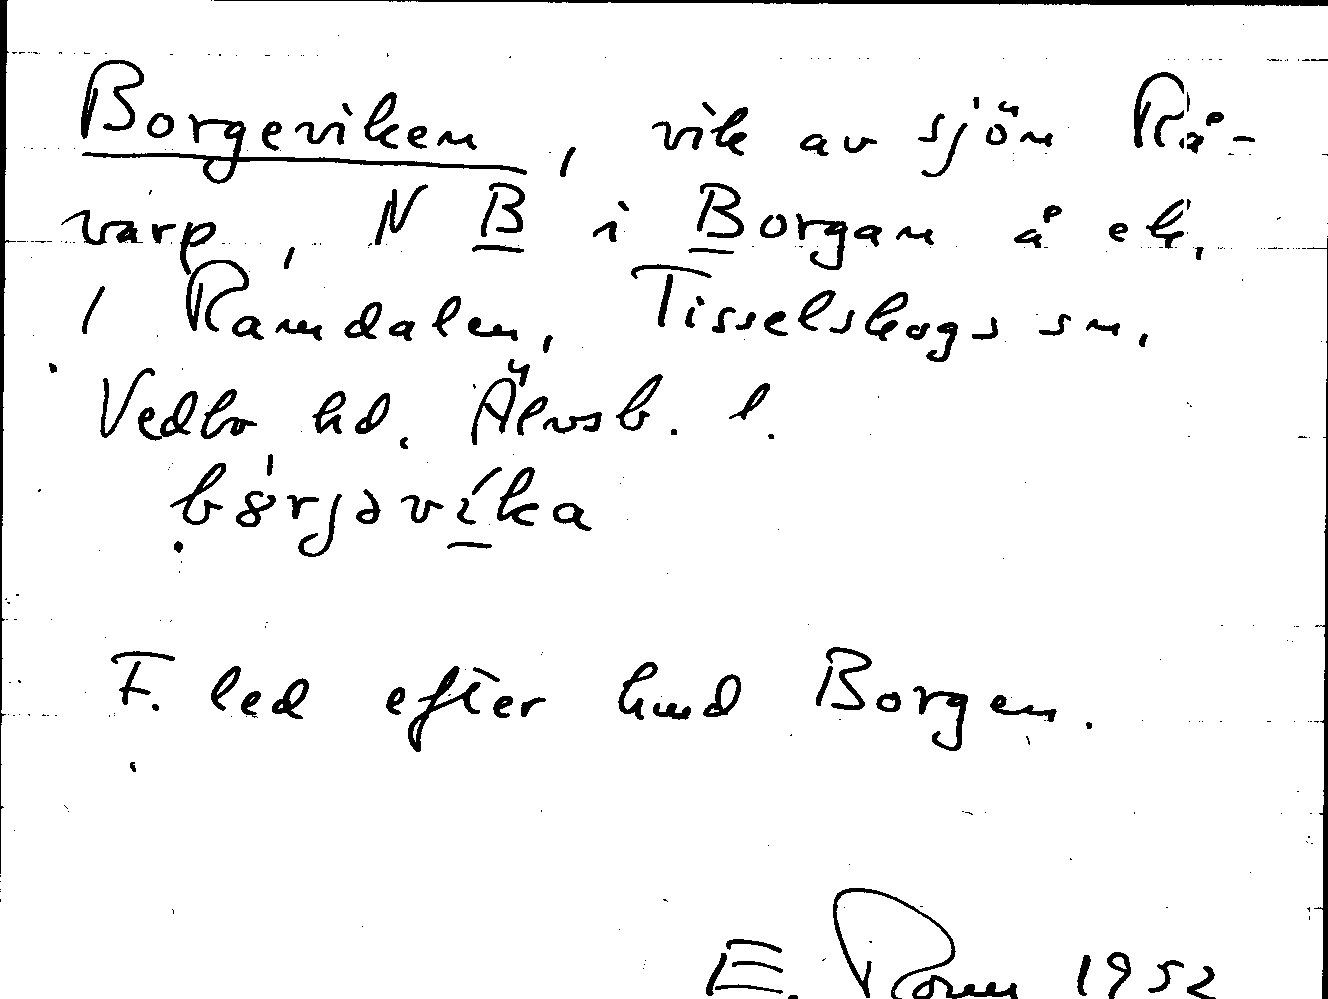 Borgeviken, vik av sjön Rå-
varp, N B i Borgan å ek.
1 Ramdalen, Tisselskogs sn,
Vedbo hd. Älvsb. l.
bo̍rjəvíka
F. led efter hmd Borgen.
E. 1952